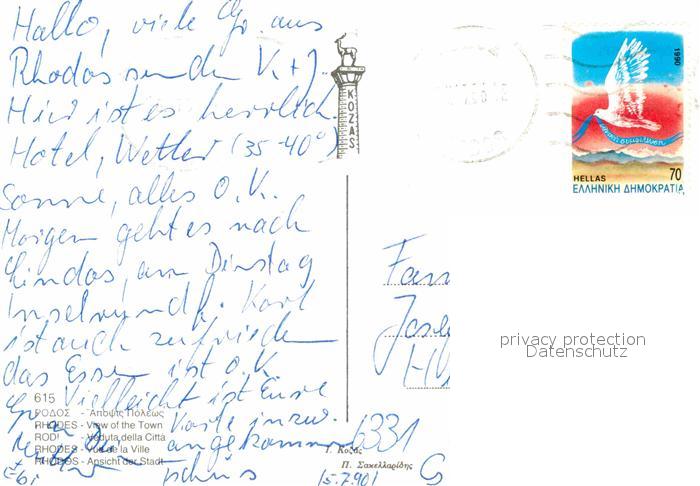 Hallo, viele Gr. aus
Rhodos senden V. + J.
Hier ist es herrlich.
Hotel, Wetter (35-40°)
Sonne, alles O.K.
Morgen geht es nach
Lindos, am Dienstag
Inselrundf. Karl
ist auch zufrieden
das Essen ist O.K.
Vielleicht ist Eure
Karte inzw.
angekommen
tschüs
15.7.90
KOZAS
1990
HELLAS 70
ΕΛΛΗΝΙΚΗ ΔΗΜΟΚΡΑΤΙΑ
Fam
Jose
6331
privacy protection
Datenschutz
615
ΡΟΔΟΣ - Άποψις Πόλεως
RHODES - View of the Town
RODI - Veduta della Città
RHODES - Vue de la Ville
RHODOS - Ansicht der Stadt
Γ. Κοζάς
Π. Σακελλαρίδης